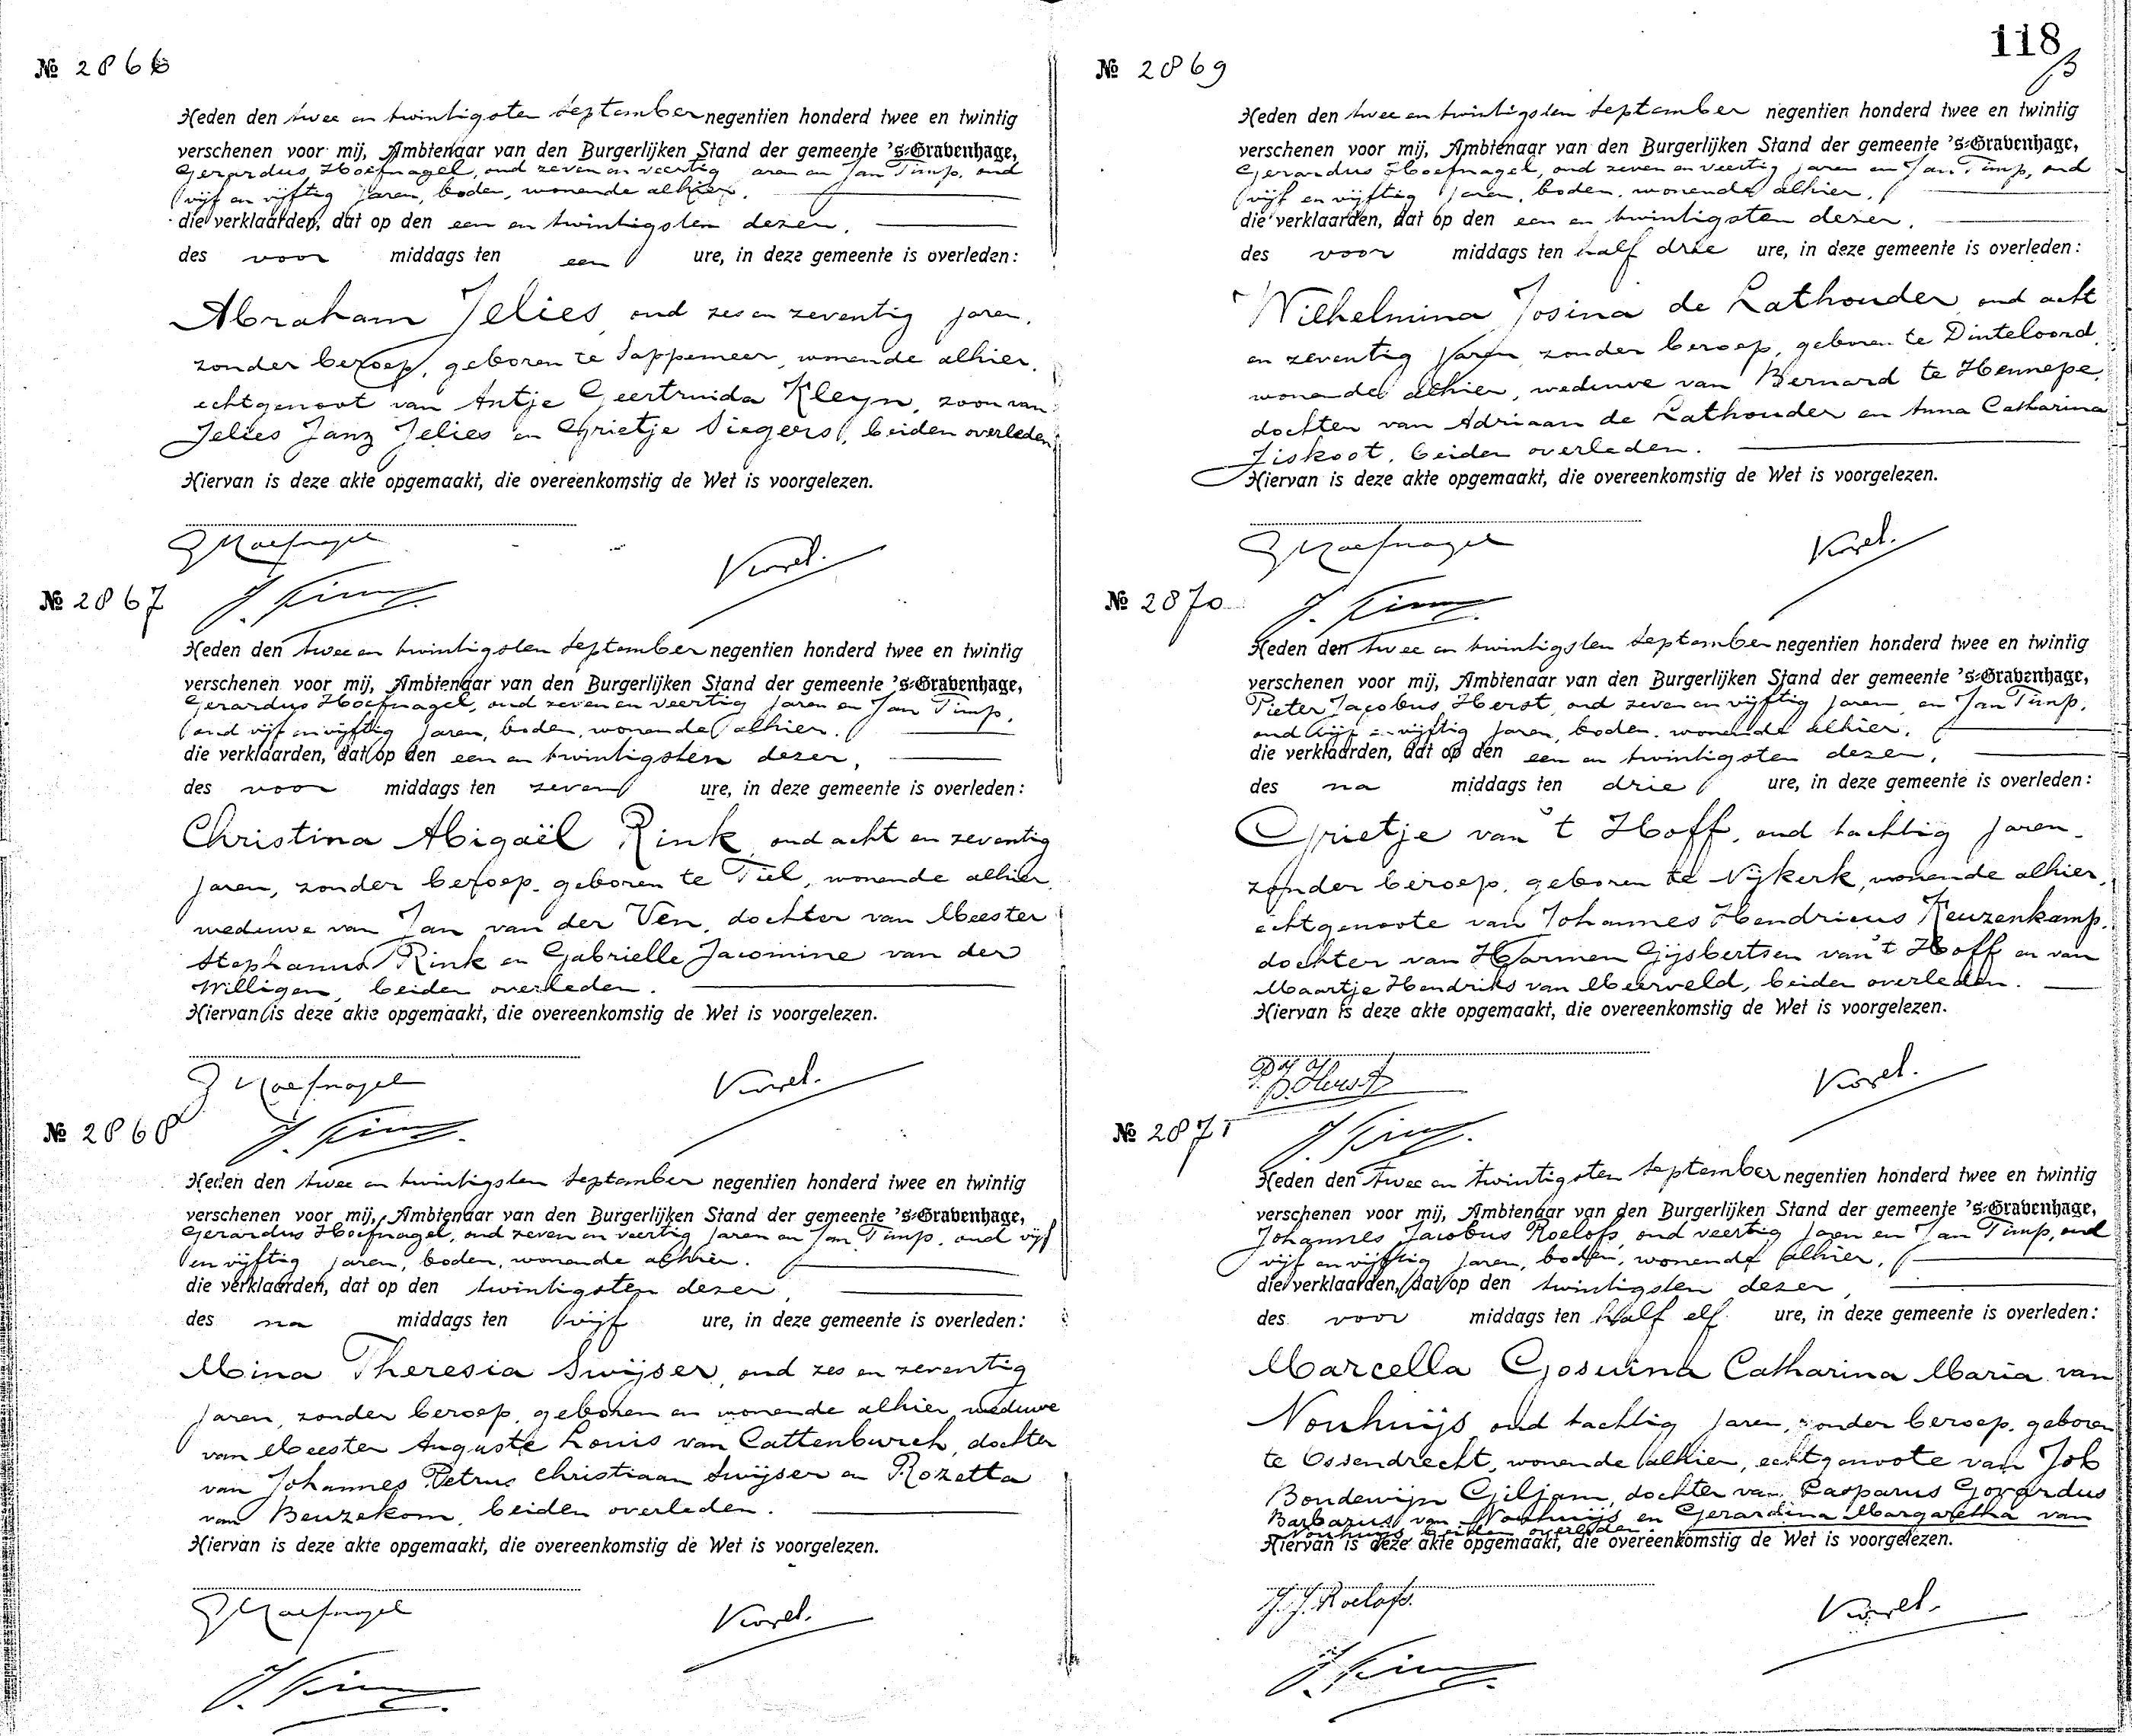 № 2866
Heden den twee en twintigsten September negentien honderd twee en twintig
verschenen voor mij, Ambtenaar van den Burgerlijken Stand der gemeente 's-Gravenhage,
Gerardus Hoefnagel, oud zeven en veertig jaren en Jan Timp, oud
vijf en vijftig jaren, boden, wonende alhier.
die verklaarden, dat op den een en twintigsten dezer,
des voor middags ten een ure, in deze gemeente is overleden:
Abraham Jelies, oud zes en zeventig jaren,
zonder beroep, geboren te Sappemeer, wonende alhier,
echtgenoot van Antje Geertruida Kleyn, zoon van
Jelies Janz Jelies en Grietje Siegers, beiden overleden.
Hiervan is deze akte opgemaakt, die overeenkomstig de Wet is voorgelezen.
G Hoefnagel
J. Timp
№ 2867
Heden den twee en twintigsten September negentien honderd twee en twintig
verschenen voor mij, Ambtenaar van den Burgerlijken Stand der gemeente 's-Gravenhage,
Gerardus Hoefnagel, oud zeven en veertig jaren en Jan Timp,
oud vijf en vijftig jaren, boden, wonende alhier.
die verklaarden, dat op den een en twintigsten dezer,
des voor middags ten zeven ure, in deze gemeente is overleden:
Christina Abigaël Rink, oud acht en zeventig
jaren, zonder beroep, geboren te Tiel, wonende alhier,
weduwe van Jan van der Ven, dochter van Meester
Stephanus Rink en Gabrielle Jacomine van der
Willigen, beiden overleden.
Hiervan is deze akte opgemaakt, die overeenkomstig de Wet is voorgelezen.
G Hoefnagel
J. Timp
№ 2868
Heden den twee en twintigsten September negentien honderd twee en twintig
verschenen voor mij, Ambtenaar van den Burgerlijken Stand der gemeente 's-Gravenhage,
Gerardus Hoefnagel, oud zeven en veertig jaren en Jan Timp, oud vijf
en vijftig jaren, boden, wonende alhier.
die verklaarden, dat op den twintigsten dezer,
des na middags ten vijf ure, in deze gemeente is overleden:
Mina Theresia Swijser, oud zes en zeventig
jaren, zonder beroep, geboren en wonende alhier, weduwe
van Meester Auguste Louis van Cattenburch, dochter
van Johannes Petrus Christiaan Swijser en Rozetta
van Beuzekom, beiden overleden.
Hiervan is deze akte opgemaakt, die overeenkomstig de Wet is voorgelezen.
G Hoefnagel
J. Timp
118
№ 2869
Heden den twee en twintigsten September negentien honderd twee en twintig
verschenen voor mij, Ambtenaar van den Burgerlijken Stand der gemeente 's-Gravenhage,
Gerardus Hoefnagel, oud zeven en veertig jaren en Jan Timp, oud
vijf en vijftig jaren, boden, wonende alhier,
die verklaarden, dat op den een en twintigsten dezer,
des voor middags ten half drie ure, in deze gemeente is overleden:
Wilhelmina Josina de Lathouder, oud acht
en zeventig jaren, zonder beroep, geboren te Dinteloord,
wonende alhier, weduwe van Bernard te Hennepe,
dochter van Adriaan de Lathouder en Anna Catharina
Jiskoot, beiden overleden.
Hiervan is deze akte opgemaakt, die overeenkomstig de Wet is voorgelezen.
G Hoefnagel
J. Timp
№ 2870
Heden den twee en twintigsten September negentien honderd twee en twintig
verschenen voor mij, Ambtenaar van den Burgerlijken Stand der gemeente 's-Gravenhage,
Pieter Jacobus Herst, oud zeven en vijftig jaren, en Jan Timp,
oud vijf en vijftig jaren, boden, wonende alhier,
die verklaarden, dat op den een en twintigsten dezer,
des na middags ten drie ure, in deze gemeente is overleden:
Grietje van 't Hoff, oud tachtig jaren,
zonder beroep, geboren te Nijkerk, wonende alhier,
echtgenoote van Johannes Hendricus Keuzenkamp,
dochter van Harmen Gijsbertsen van 't Hoff en van
Maartje Hendriks van Meerveld, beiden overleden.
Hiervan is deze akte opgemaakt, die overeenkomstig de Wet is voorgelezen.
P. J. Herst
J. Timp
№ 2871
Heden den twee en twintigsten September negentien honderd twee en twintig
verschenen voor mij, Ambtenaar van den Burgerlijken Stand der gemeente 's-Gravenhage,
Johannes Jacobus Roelofs, oud veertig jaren en Jan Timp, oud
vijf en vijftig jaren, boden, wonende alhier,
die verklaarden, dat op den twintigsten dezer,
des voor middags ten half elf ure, in deze gemeente is overleden:
Marcella Gosuina Catharina Maria van
Nouhuijs, oud tachtig jaren, zonder beroep, geboren
te Ossendrecht, wonende alhier, echtgenoote van Job
Boudewijn Giljam, dochter van Casparus Gerardus
Barbarus van Nouhuijs en Gerardina Margaretha van
Nouhuijs, beiden overleden.
Hiervan is deze akte opgemaakt, die overeenkomstig de Wet is voorgelezen.
J. J. Roelofs.
J. Timp